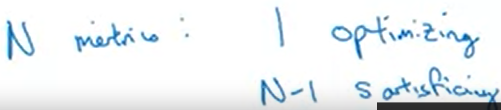 N metrics: 1 optimizing
N-1 satisficing